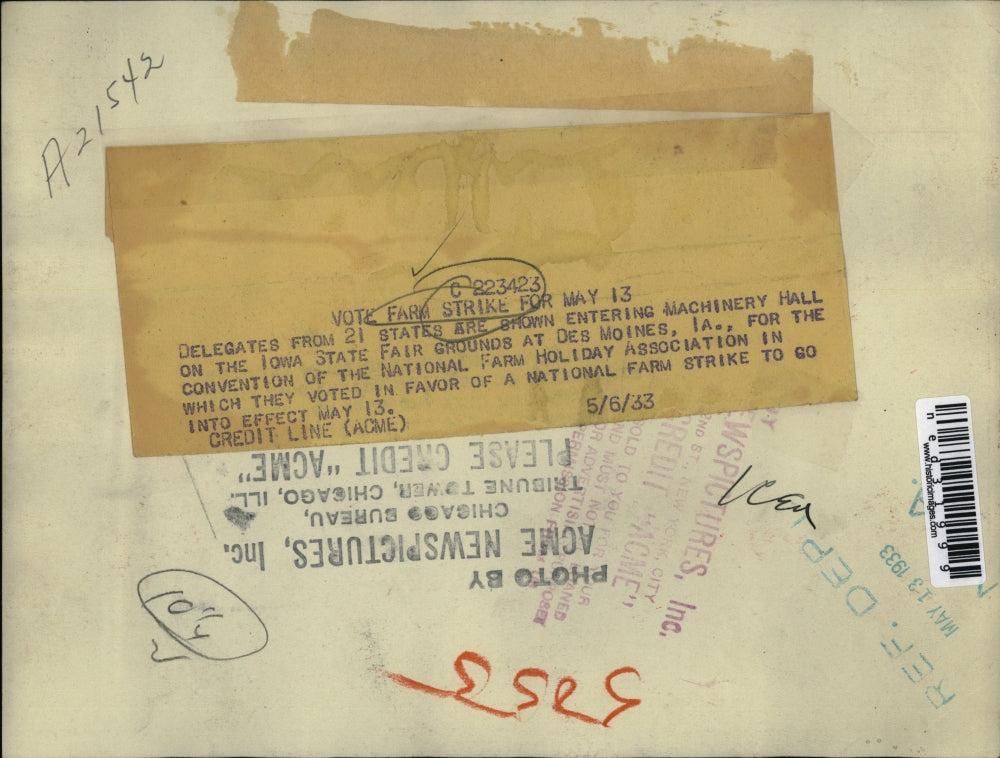 A21542
C 223423
VOTE FARM STRIKE FOR MAY 13
DELEGATES FROM 21 STATES ARE SHOWN ENTERING MACHINERY HALL
ON THE IOWA STATE FAIR GROUNDS AT DES MOINES, IA., FOR THE
CONVENTION OF THE NATIONAL FARM HOLIDAY ASSOCIATION IN
WHICH THEY VOTED IN FAVOR OF A NATIONAL FARM STRIKE TO GO
INTO EFFECT MAY 13.
CREDIT LINE (ACME) 5/6/33
PHOTO BY
ACME NEWSPICTURES, Inc.
CHICAGO BUREAU,
TRIBUNE TOWER, CHICAGO, ILL.
PLEASE CREDIT "ACME"
NEWSPICTURES, Inc.
CITY
CREDIT "ACME"
SOLD TO YOU FOR
REF. DEPT
MAY 13 1933
www.historicimages.com
ned31999